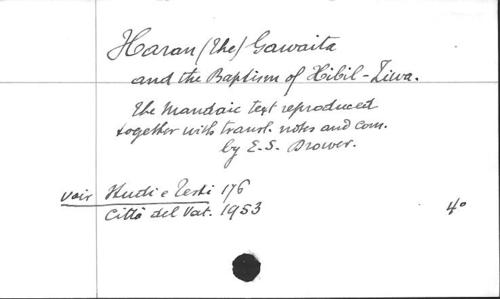 Haran (the) Gawaita
and the Baptism of Hibil-Ziwa.
the Mandaic text reproduced
together with transl. notes and com.
by E.S. Drower.
voir Studi e Testi 176
Città del Vat. 1953 4°